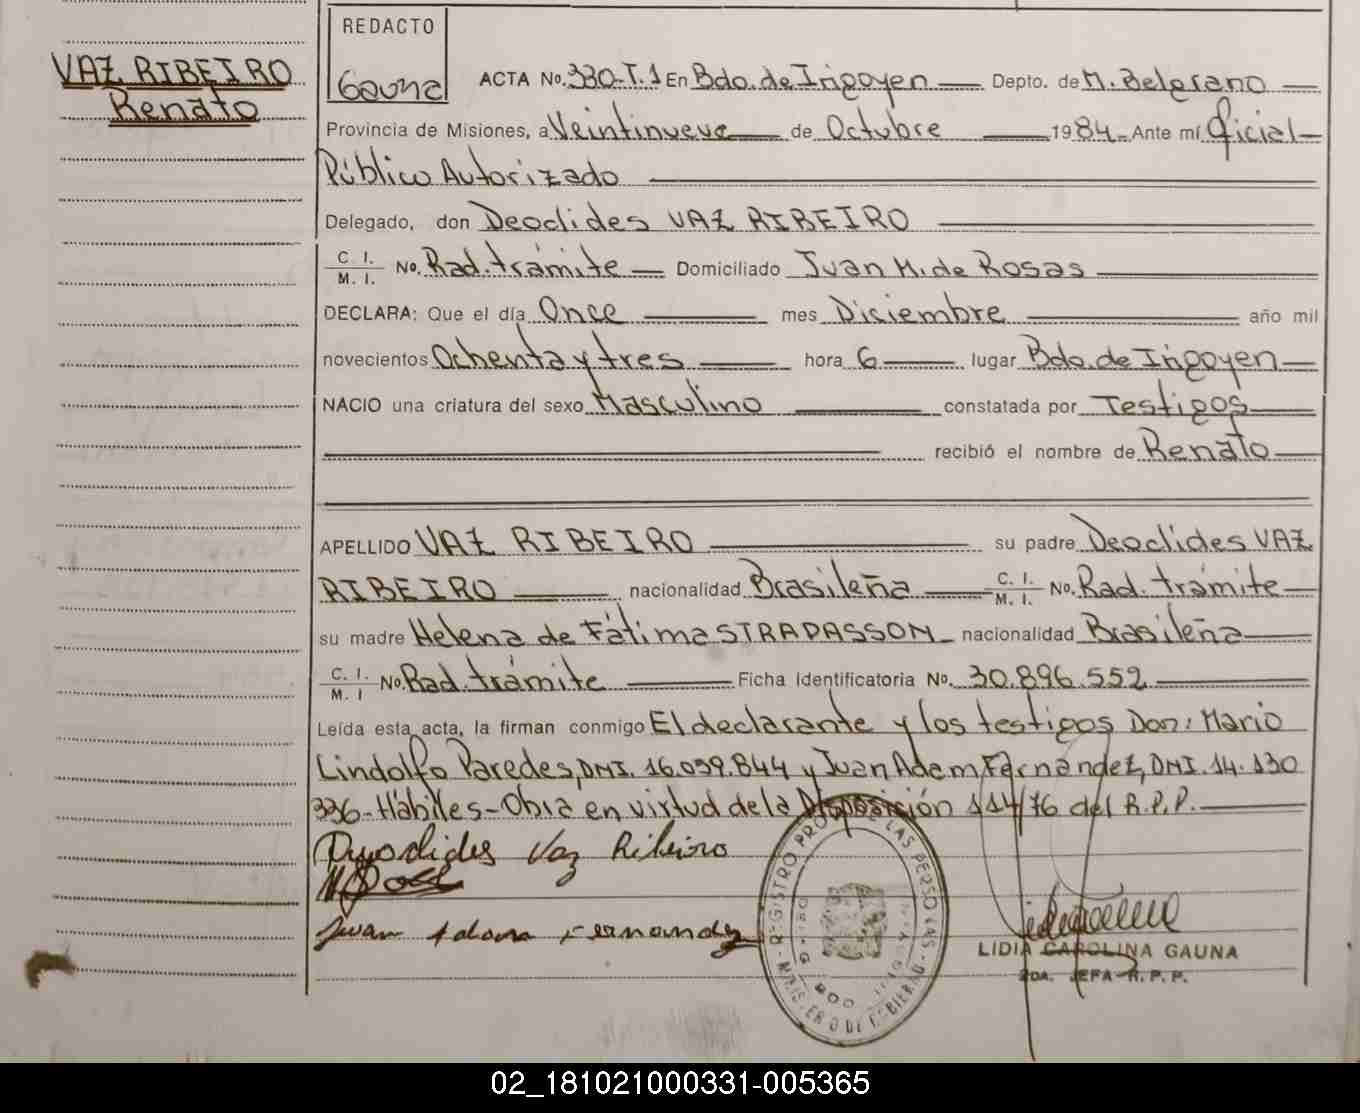 VAZ RIBEIRO
Renato
REDACTO
Gauna
ACTA No. 330-T.1 En Bdo. de Irigoyen Depto. de M. Belgrano
Provincia de Misiones, a Veintinueve de Octubre 1984- Ante mí Oficial
Público Autorizado
Delegado, don Deoclides VAZ RIBEIRO
C. I. M. I. No. Rad. trámite Domiciliado Juan M. de Rosas
DECLARA: Que el día Once mes Diciembre año mil
novecientos Ochenta y tres hora 6 lugar Bdo. de Irigoyen
NACIO una criatura del sexo Masculino constatada por Testigos
recibió el nombre de Renato
APELLIDO VAZ RIBEIRO su padre Deoclides VAZ
RIBEIRO nacionalidad Brasileña C. I. M. I. No. Rad. trámite
su madre Helena de Fátima STRAPASSON nacionalidad Brasileña
C. I. M. I No. Rad. trámite Ficha Identificatoria No. 30.896.552
Leída esta acta, la firman conmigo El declarante y los testigos Don: Mario
Lindolfo Paredes, DNI. 16.039.844 y Juan Adam Fernández, DNI. 14.130
336- Hábiles- Obra en virtud de la Disposición 114/76 del R.P.P.
Dyodlides Vaz Ribeiro
Juan Adam Fernandez
REGISTRO PROV. DE LAS PERSONAS - MINISTERIO DE GOBIERNO
LIDIA CAROLINA GAUNA
2DA. JEFA R. P. P.
02_181021000331-005365